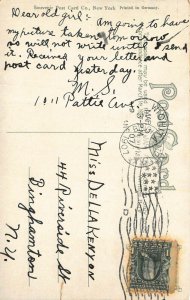 Souvenir Post Card Co., New York Printed in Germany.
Dear old girl: Am going to have
my picture taken tomorrow
so will not write until I send
it. Received your letter and
post card yesterday.
M. S.
1011 Pattie Ave.
Miss Della Kenyon
44 Riverside St.
Binghamton
N. Y.